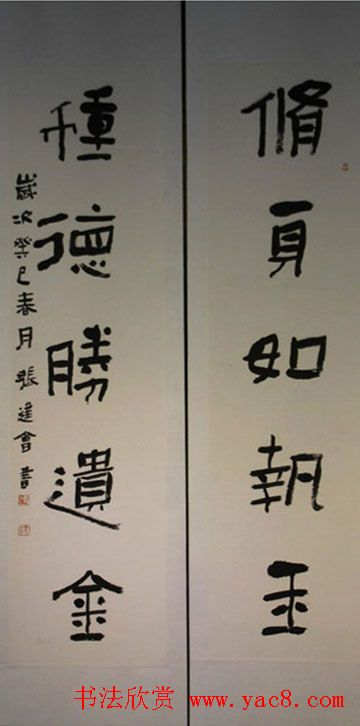 脩身如執玉
種德勝遺金
歲次癸巳春月 張進會書
书法欣赏 www.yac8.com